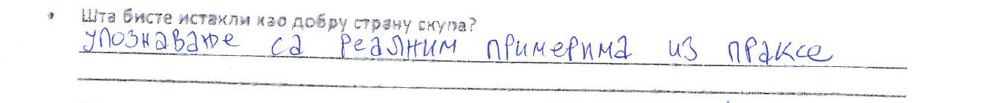 Шта бисте истакли као добру страну скупа?
упознавање са реалним примерима из праксе